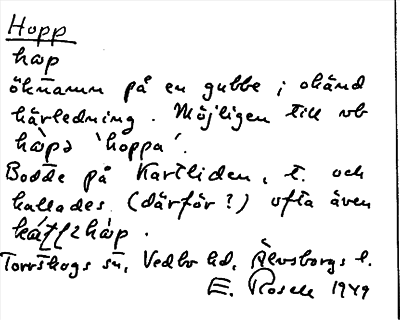 Hopp
håp
öknamn på en gubbe; okänd
härledning. Möjligen till vb
hå̀pə 'hoppa'.
Bodde på Kartliden, t. och
kallades (därför?) ofta även
Torrskogs sn, Vedbo hd, Älvsborgs l.
E. Rosell 1949